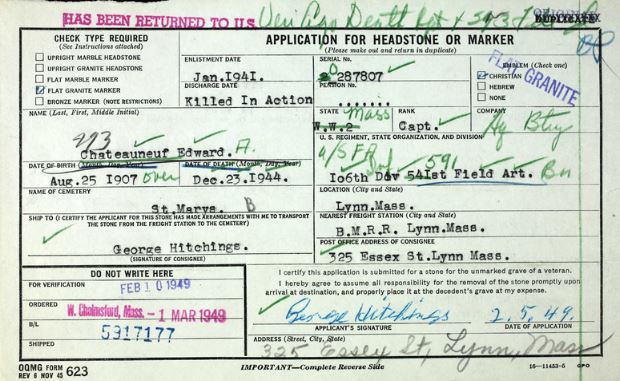 HAS BEEN RETURNED TO U.S.
ORIGINAL
DUPLICATE
CHECK TYPE REQUIRED
(See Instructions attached)
UPRIGHT MARBLE HEADSTONE
UPRIGHT GRANITE HEADSTONE
FLAT MARBLE MARKER
FLAT GRANITE MARKER
BRONZE MARKER (NOTE RESTRICTIONS)
APPLICATION FOR HEADSTONE OR MARKER
(Please make out and return in duplicate)
ENLISTMENT DATE
Jan.1941.
DISCHARGE DATE
Killed In Action
SERIAL No.
O
287807
PENSION No.
......
EMBLEM (Check one)
CHRISTIAN
HEBREW
NONE
FLAT GRANITE
NAME (Last, First, Middle Initial)
Chateauneuf Edward. A.
STATE
Mass
W.W.2
RANK
Capt.
COMPANY
Hq Btry
U.S. REGIMENT, STATE ORGANIZATION, AND DIVISION
591
106th Div 541st Field Art. Bn
DATE OF BIRTH (Month, Day, Year)
Aug.25 1907
over
DATE OF DEATH (Month, Day, Year)
Dec.23.1944.
NAME OF CEMETERY
St.Marys. B
LOCATION (City and State)
Lynn.Mass.
SHIP TO (I CERTIFY THE APPLICANT FOR THIS STONE HAS MADE ARRANGEMENTS WITH ME TO TRANSPORT
THE STONE FROM THE FREIGHT STATION TO THE CEMETERY)
George Hitchings.
(SIGNATURE OF CONSIGNEE)
NEAREST FREIGHT STATION (City and State)
B.M.R.R. Lynn.Mass.
POST OFFICE ADDRESS OF CONSIGNEE
325 Essex St.Lynn Mass.
DO NOT WRITE HERE
FOR VERIFICATION
FEB 10 1949
ORDERED
W. Chelmsford, Mass. - 1 MAR 1949
B/L
5917177
SHIPPED
I certify this application is submitted for a stone for the unmarked grave of a veteran.
I hereby agree to assume all responsibility for the removal of the stone promptly upon
arrival at destination, and properly place it at the decedent's grave at my expense.
George Hitchings
2.5.49.
APPLICANT'S SIGNATURE
DATE OF APPLICATION
ADDRESS (Street, City, State)
325 Essex St, Lynn, Mass
OQMG FORM
REV 6 NOV 45 623
IMPORTANT—Complete Reverse Side
16-11453-5 GPO